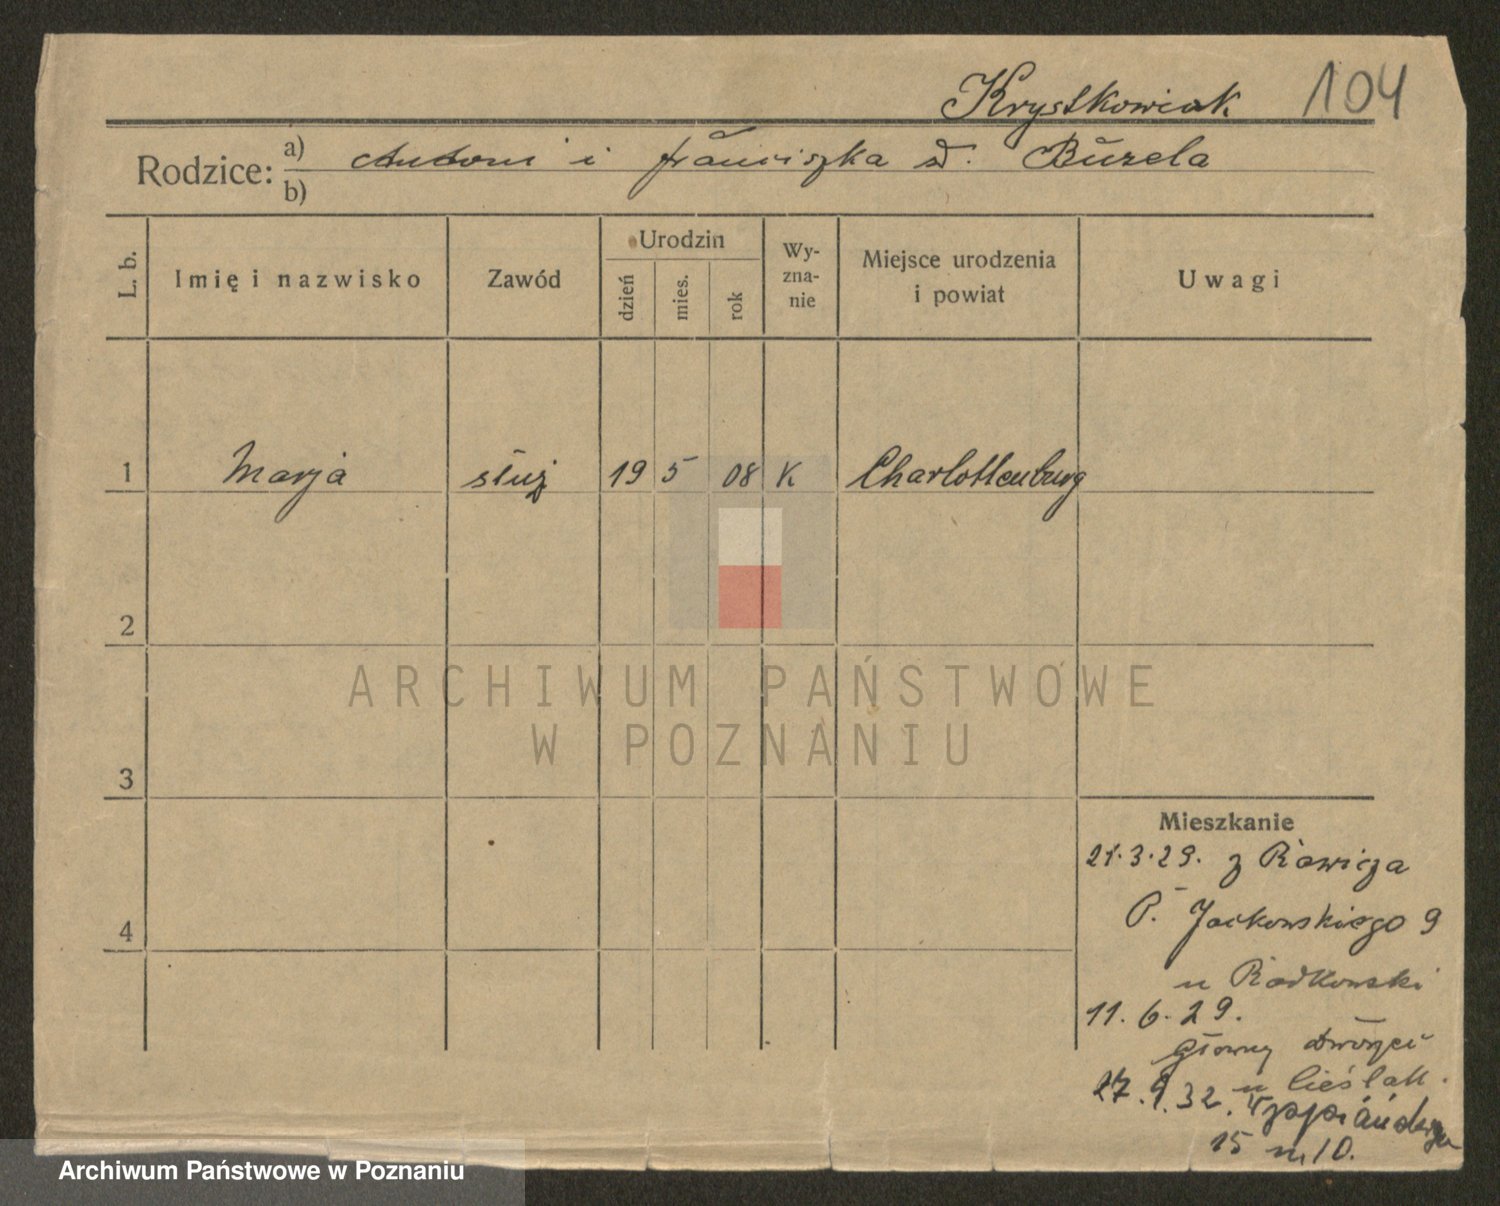 Krystkowiak 104
Rodzice: a) Antoni i Franciszka d. Buzela
b)
L. b. Imię i nazwisko Zawód Urodzin dzień mies. rok Wy-zna-nie Miejsce urodzenia i powiat Uwagi
1 Marja służ 19 5 08 K Charlottenburg
2
ARCHIWUM PAŃSTWOWE
W POZNANIU
3
Mieszkanie
21.3.29. z Rawicza
P. Jackowskiego 9
4
u Radkowski
11.6.29.
główny dworzec
u Cieślak.
27.9.32.
15 m 10.
Archiwum Państwowe w Poznaniu